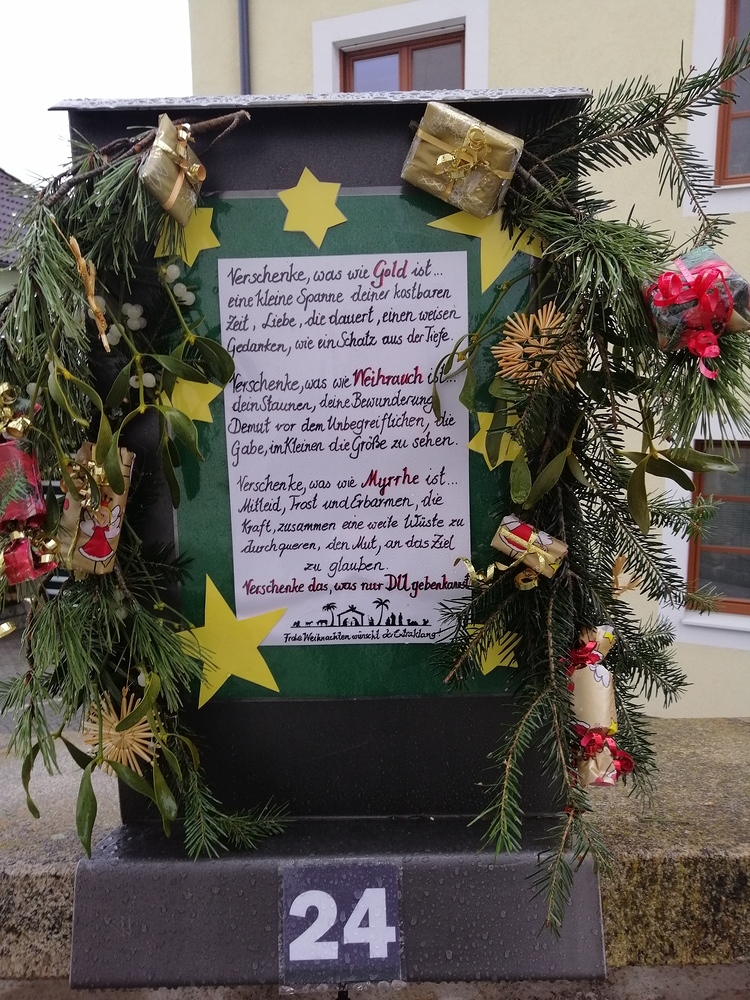 Verschenke, was wie Gold ist...
eine kleine Spanne deiner kostbaren
Zeit, Liebe, die dauert, einen weisen
Gedanken, wie ein Schatz aus der Tiefe.
Verschenke, was wie Weihrauch ist...
dein Staunen, deine Bewunderung
Demut vor dem Unbegreiflichen, die
Gabe, im Kleinen die Größe zu sehen.
Verschenke, was wie Myrrhe ist...
Mitleid, Trost und Erbarmen, die
Kraft, zusammen eine weite Wüste zu
durchqueren, den Mut, an das Ziel
zu glauben.
Verschenke das, was nur DU geben kannst
Frohe Weihnachten wünscht der Extraklang!
24